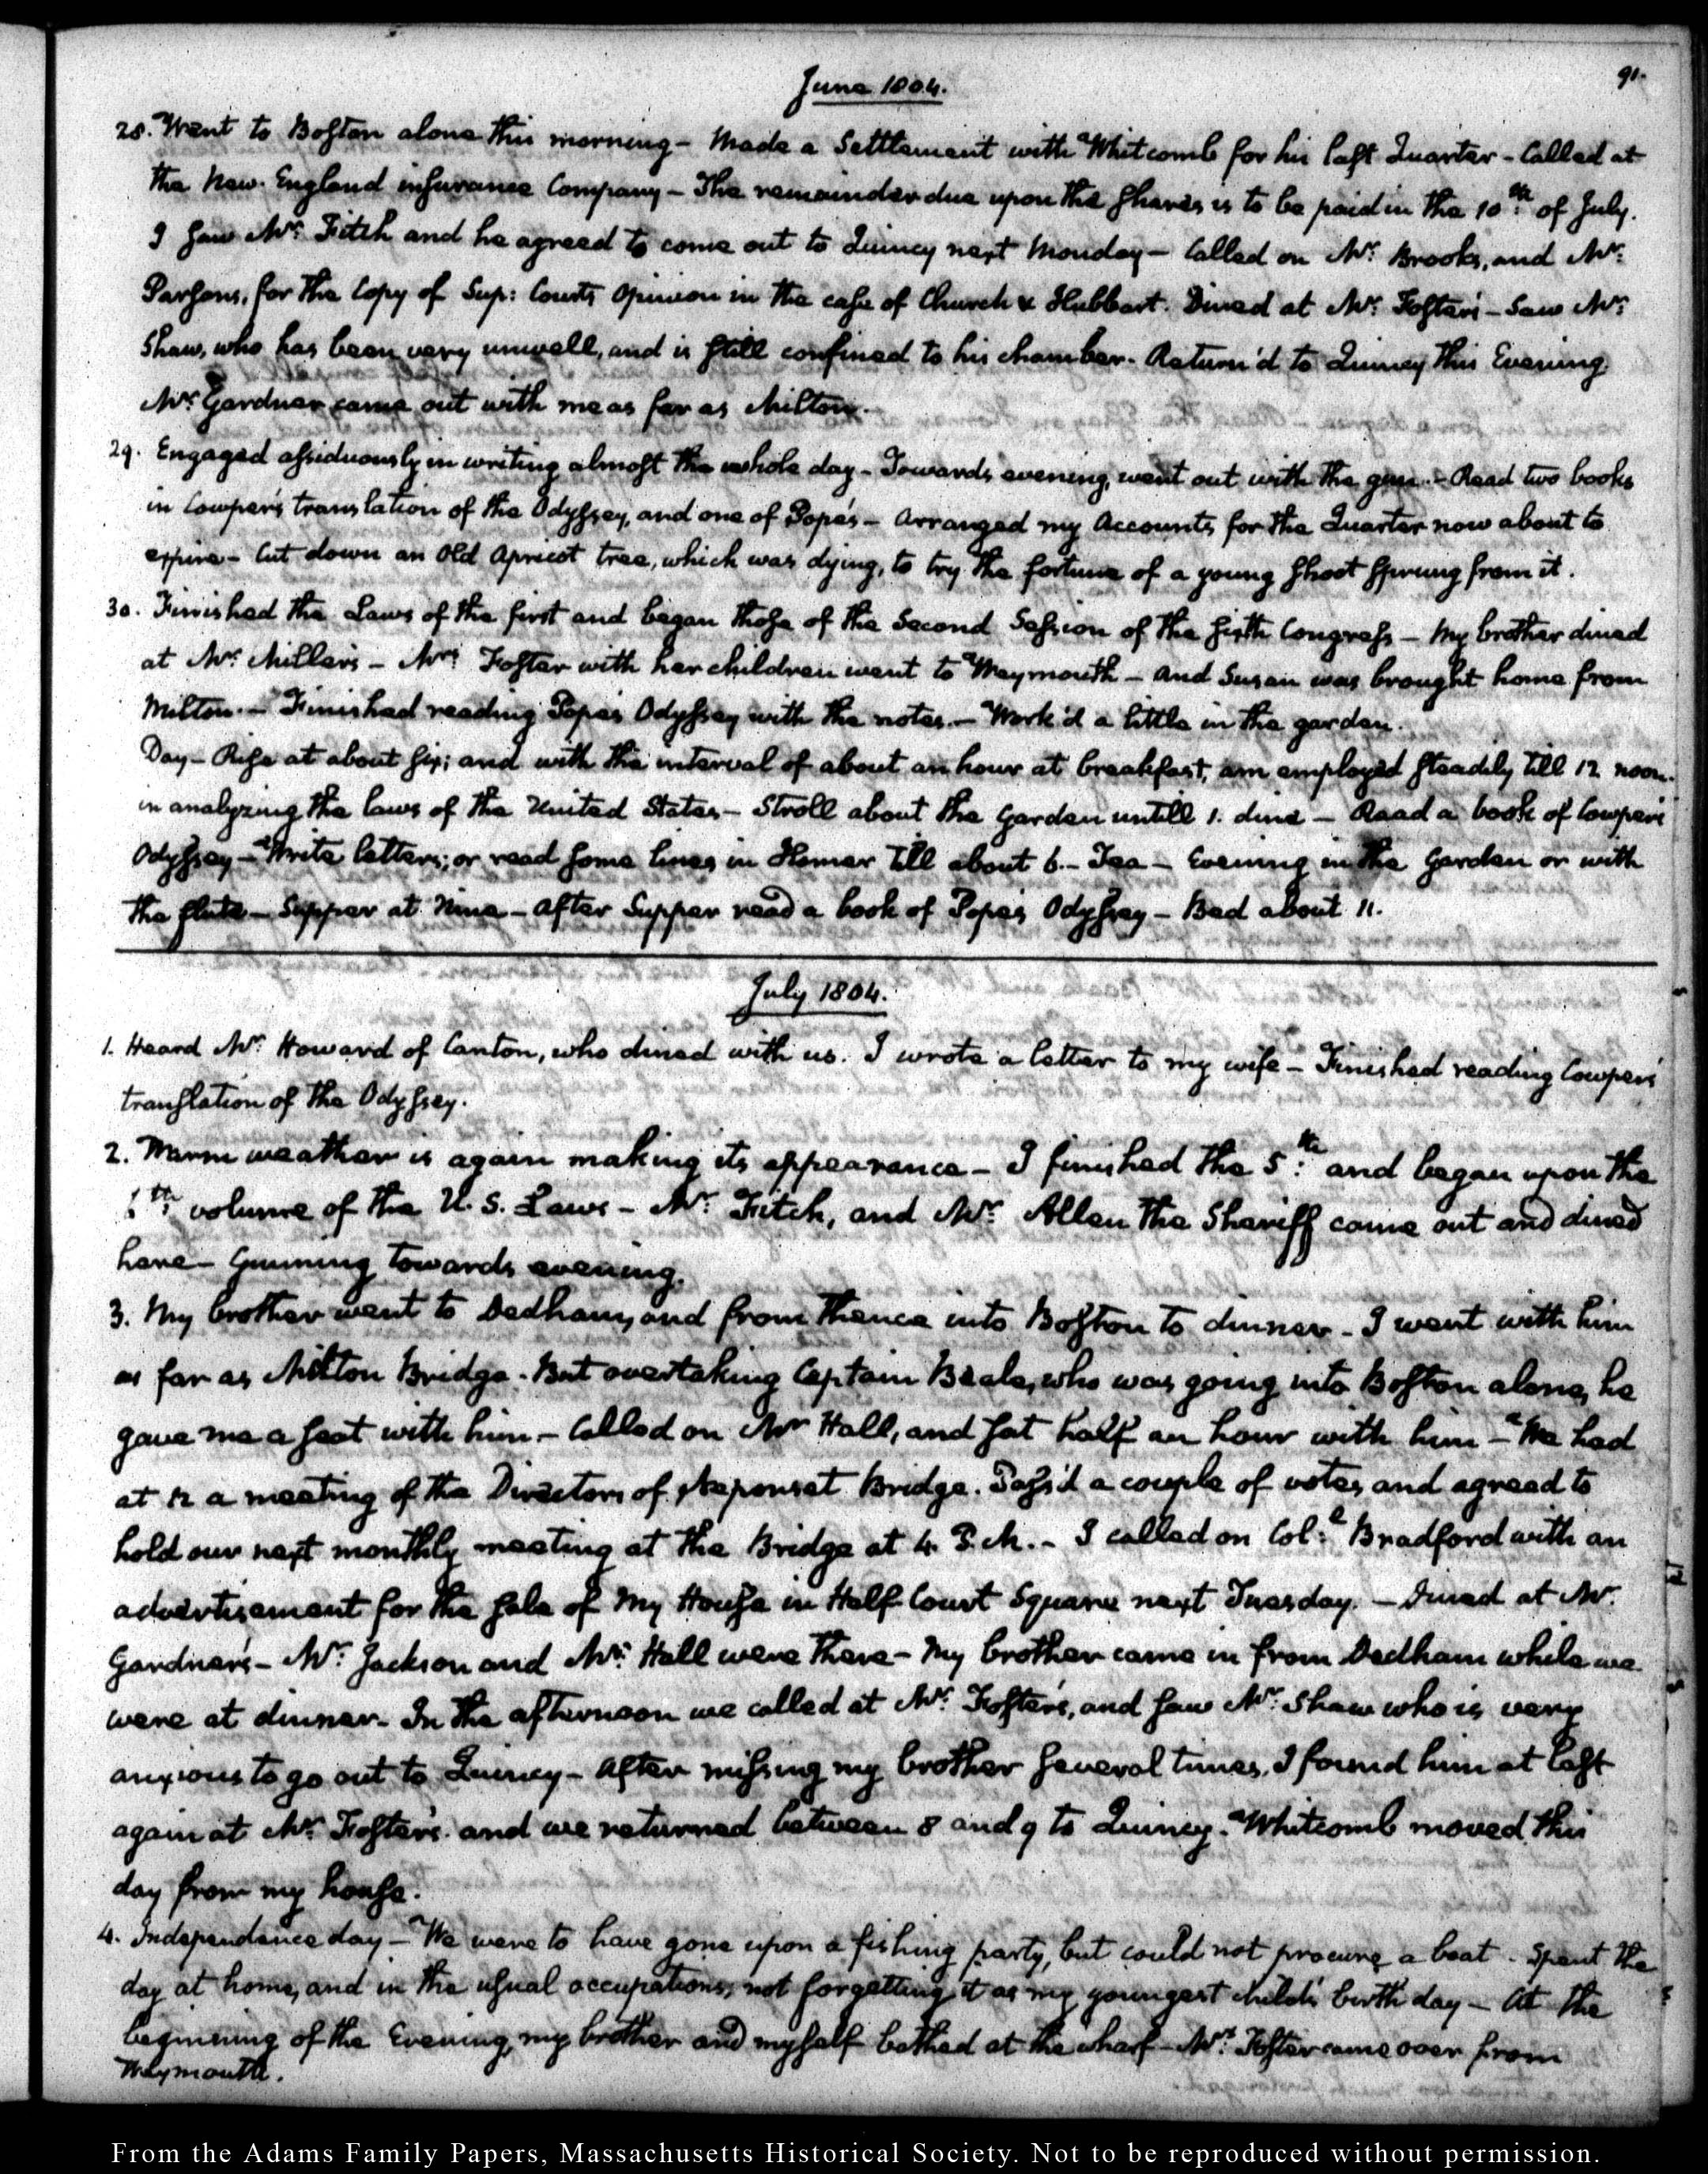 91.
June 1804.
28. Went to Boston alone this morning - Made a Settlement with Whitcomb for his last Quarter - Called at
the New-England insurance Company - The remainder due upon the shares is to be paid in the 10th of July.
I saw Mr. Fitch and he agreed to come out to Quincy next Monday - Called on Mr. Brooks, and Mr.
Parsons, for the Copy of Sup: Courts Opinion in the case of Church & Hubbart. Dined at Mr. Foster's - Saw Mr.
Shaw, who has been very unwell, and is still confined to his chamber. Return'd to Quincy this Evening
Mr. Gardner came out with me as far as Milton.
29. Engaged assiduously in writing almost the whole day - Towards evening, went out with the gun. - Read two books
in Cowper's translation of the Odyssey, and one of Pope's - Arranged my Accounts for the Quarter now about to
expire - Cut down an Old Apricot tree, which was dying, to try the fortune of a young shoot sprung from it.
30. Finished the Laws of the first and began those of the Second Session of the sixth Congress - My brother dined
at Mr. Miller's - Mrs. Foster with her children went to Weymouth - and Susan was brought home from
Milton. - Finished reading Pope's Odyssey with the notes. - Work'd a little in the garden.
Day - Rise at about six; and with the interval of about an hour at breakfast, am employed steadily till 12 noon.
in analyzing the laws of the United States - Stroll about the Garden untill 1. dine - Read a book of Cowper's
Odyssey - Write letters; or read some lines in Homer till about 6. - Tea - Evening in the Garden or with
the flute - Supper at Nine - After Supper read a book of Pope's Odyssey - Bed about 11.
July 1804.
1. Heard Mr. Howard of Canton, who dined with us. I wrote a letter to my wife - Finished reading Cowper's
translation of the Odyssey.
2. Warm weather is again making its appearance - I finished the 5th and began upon the
6th volume of the U. S. Laws - Mr. Fitch, and Mr. Allen the Sheriff came out and dined
here - Gunning towards evening.
3. My brother went to Dedham, and from thence into Boston to dinner - I went with him
as far as Milton Bridge. But overtaking Captain Beale, who was going into Boston alone, he
gave me a seat with him. - Called on Mr Hall, and sat half an hour with him - We had
at 12 a meeting of the Directors of Neponset Bridge. Pass'd a couple of votes, and agreed to
hold our next monthly meeting at the Bridge at 4 P.M. - I called on Col:l Bradford with an
advertisement for the sale of my House in Half Court Square next Tuesday. - Dined at Mr.
Gardner's - Mr. Jackson and Mr. Hall were there - My brother came in from Dedham while we
were at dinner. In the afternoon we called at Mr. Foster's, and saw Mr. Shaw who is very
anxious to go out to Quincy - After missing my brother several times, I found him at last
again at Mr. Foster's. and we returned between 8 and 9 to Quincy. Whitcomb moved this
day from my house.
4. Independence day - We were to have gone upon a fishing party, but could not procure a boat. Spent the
day at home, and in the usual occupations; not forgetting it as my youngest child's birth day - At the
beginning of the Evening, my brother and myself bathed at the wharf - Mrs. Foster came over from
Weymouth.
From the Adams Family Papers, Massachusetts Historical Society. Not to be reproduced without permission.